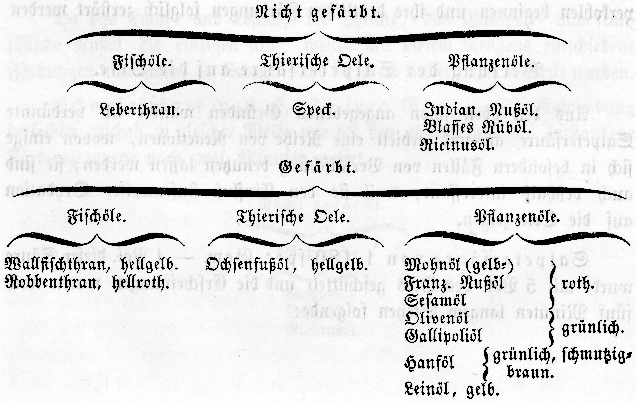 Nicht gefärbt.
Fischöle. Thierische Oele. Pflanzenöle.
Leberthran. Speck. Indian. Nußöl.
Blasses Rüböl.
Ricinusöl.
Gefärbt.
Fischöle. Thierische Oele. Pflanzenöle.
Wallfischthran, hellgelb. Ochsenfußöl, hellgelb. Mohnöl (gelb=)
Robbenthran, hellroth. Franz. Nußöl roth.
Sesamöl
Olivenöl
Gallipoliöl grünlich.
Hanföl grünlich, schmutzig=
braun.
Leinöl, gelb.